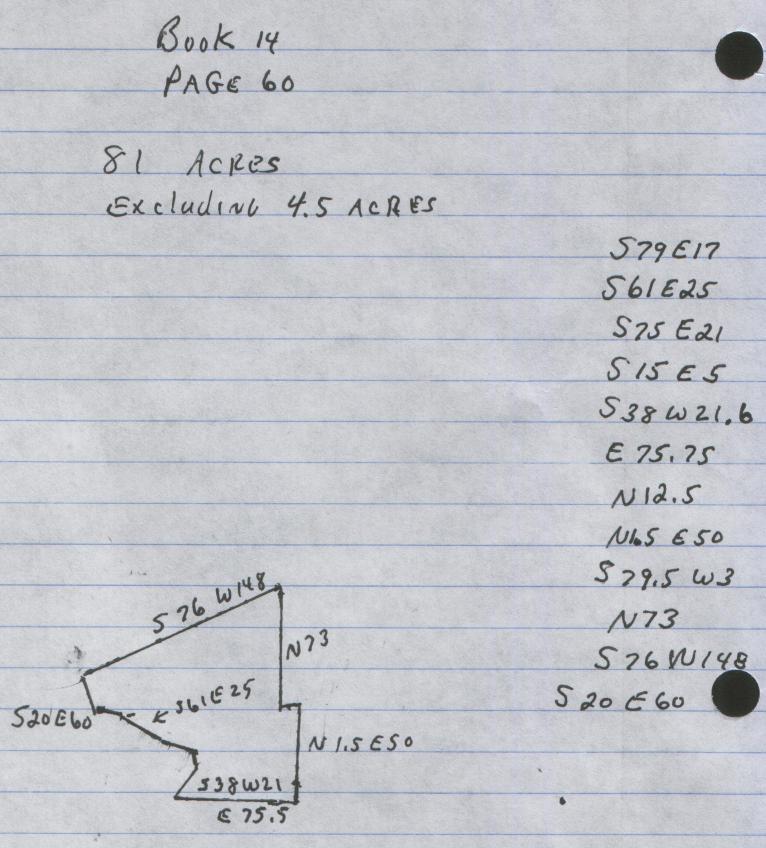 Book 14
PAGE 60
81 ACRES
Excluding 4.5 ACRES
S79E17
S61E25
S75E21
S15E5
S38W21.6
E75.75
N12.5
N1.5E50
S79.5W3
N73
S76W148
S20E60
S76W148
N73
S61E25
S20E60
N1.5E50
S38W21
E75.5